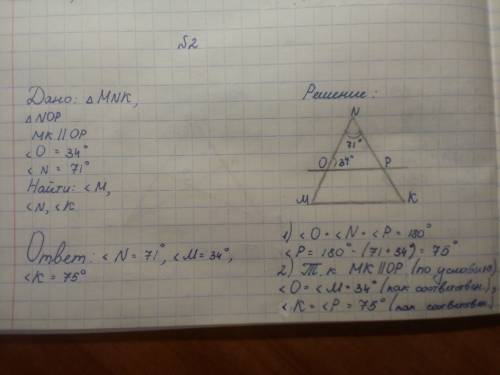 №2
Дано: △MNK,
△NOP
MK||OP
∢O = 34°
∢N = 71°
Найти: ∢M,
∢N, ∢K
Ответ: ∢N = 71°, ∢M = 34°,
∢K = 75°
Решение:
N
71°
O 34° P
M K
1) ∢O + ∢N + ∢P = 180°
∢P = 180° - (71 + 34°) = 75°
2) Т.к. MK||OP (по условию),
∢O = ∢M = 34° (как соответствен.),
∢K = ∢P = 75° (как соответствен.